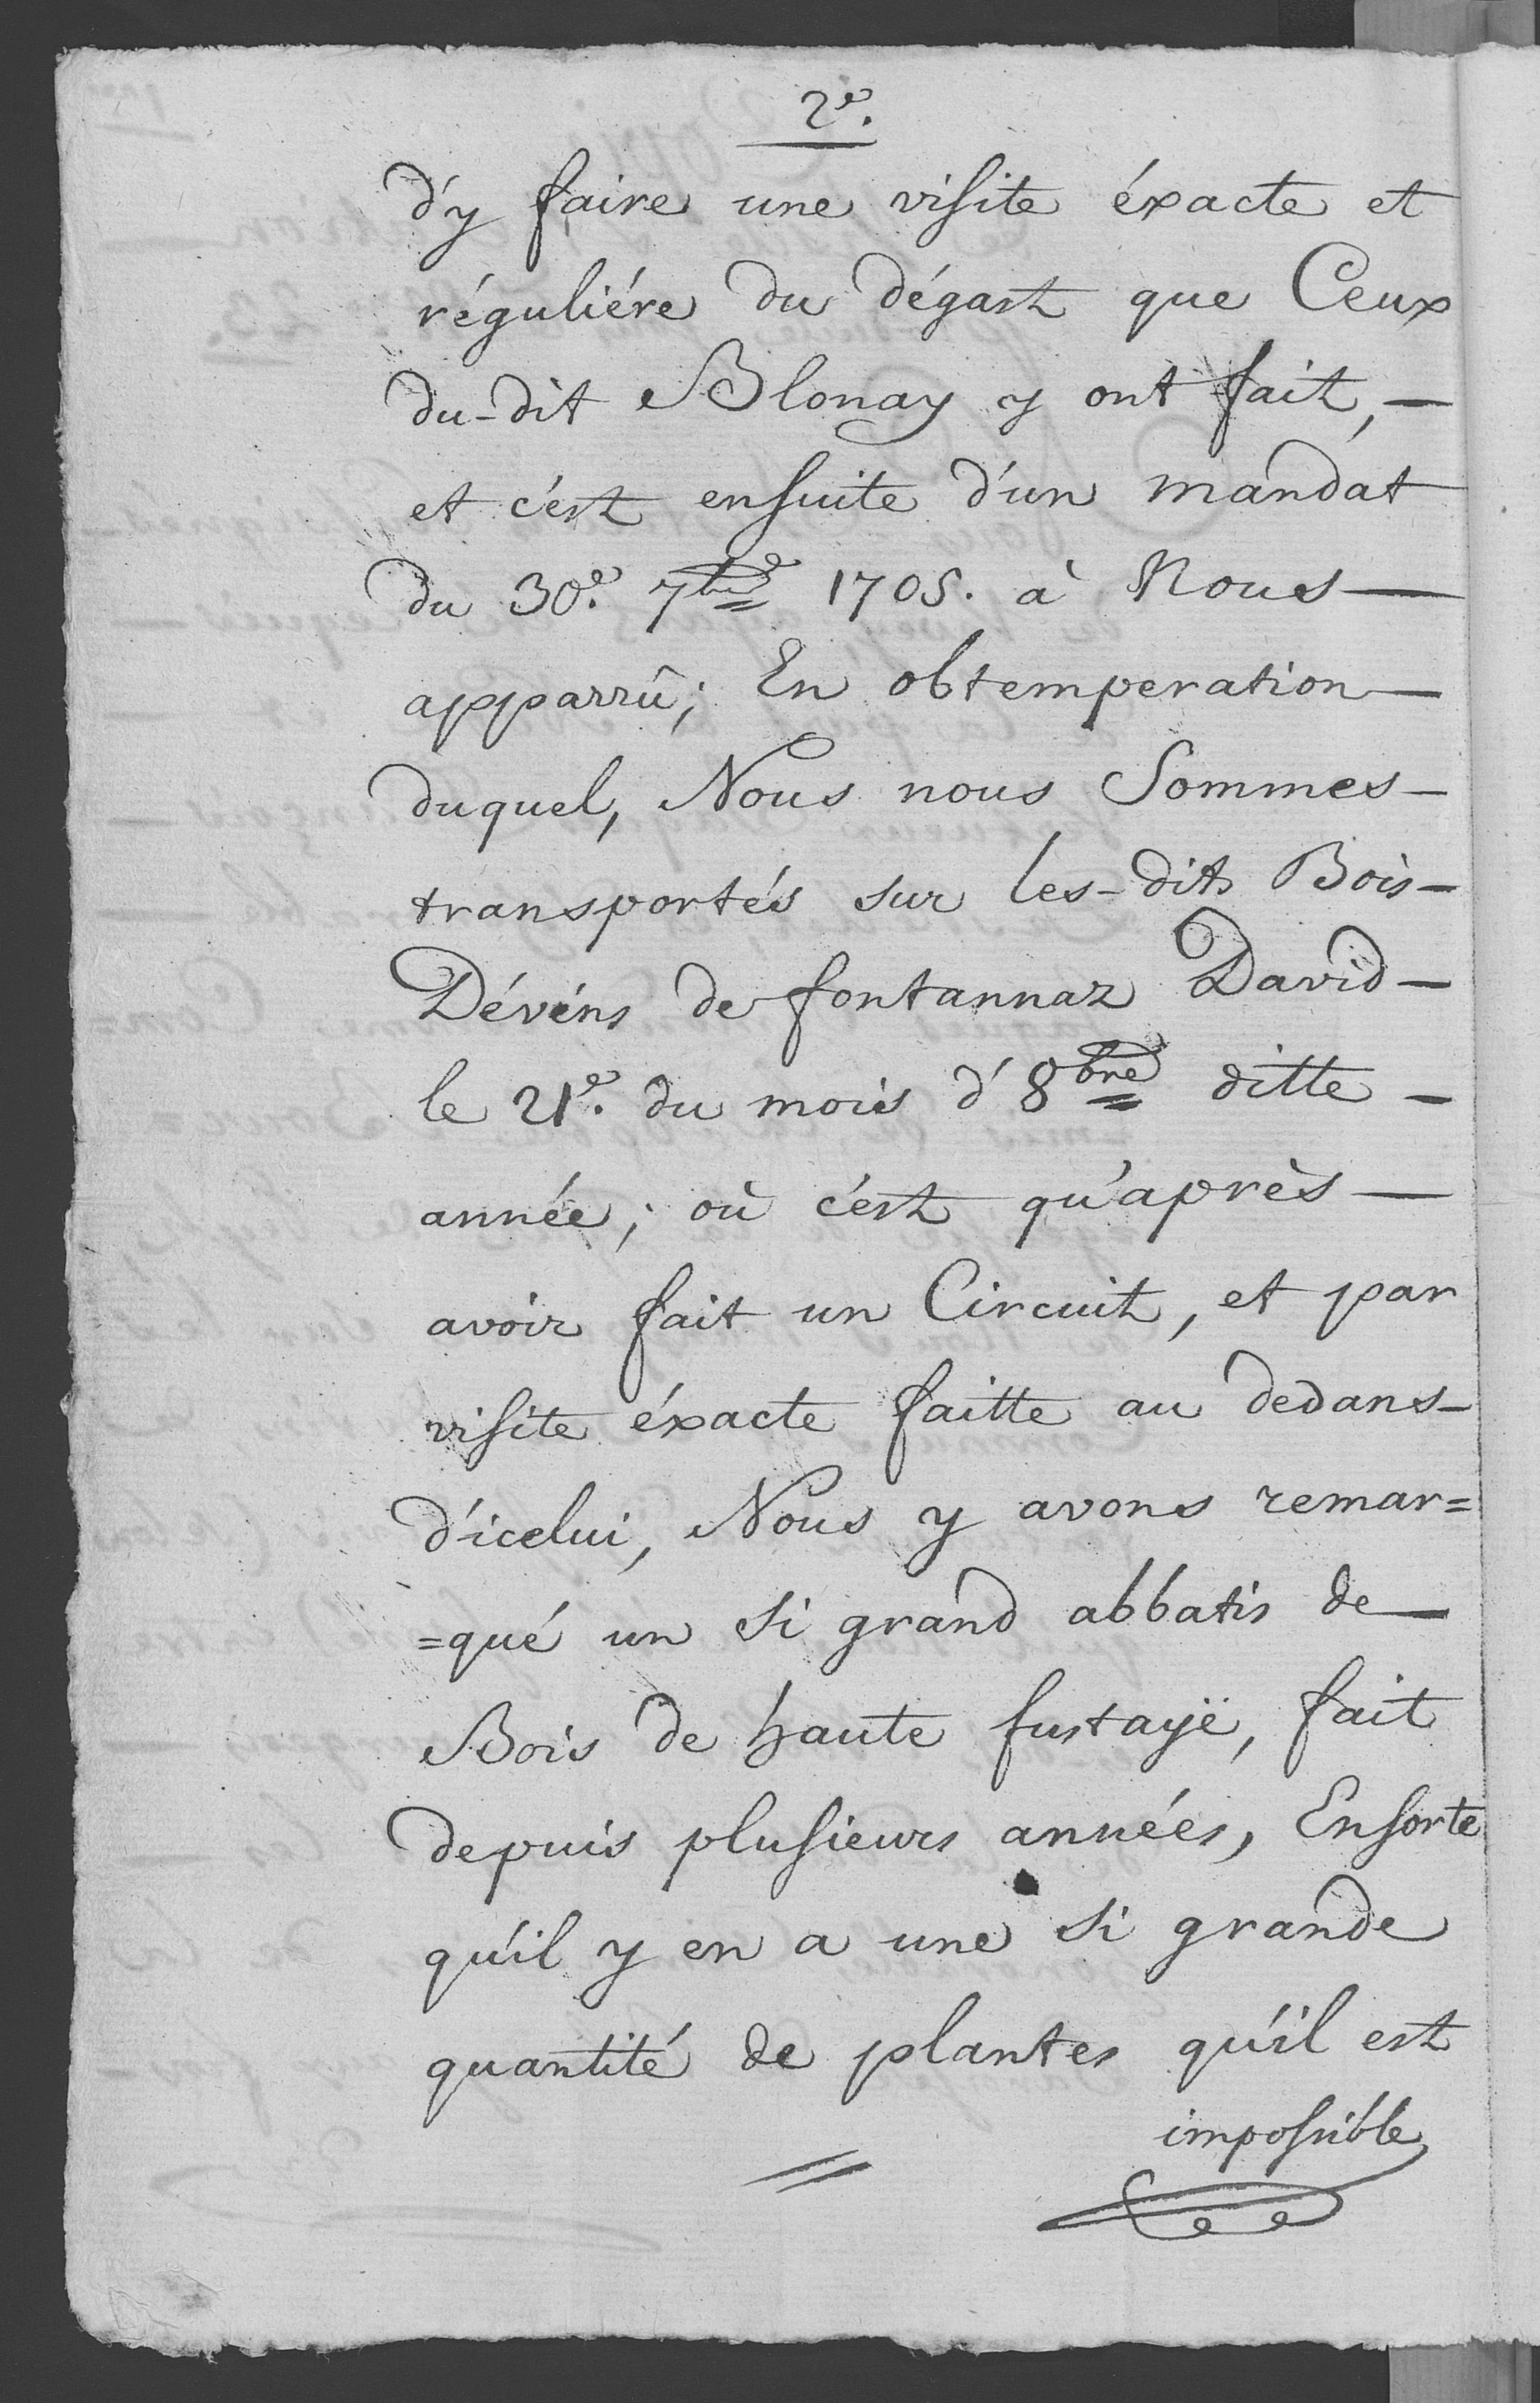 2e.
d'y faire une visite éxacte et
réguliére du dégast que Ceux
du-dit Blonay y ont fait, —
et c'est ensuite d'un mandat
du 30e. 7bre 1705. à Nous —
apparrû; En obtemperation —
duquel, Nous nous Sommes —
transportés sur les-dits Bois —
Dévéns de fontannaz David —
le 21e. du mois d'8bre ditte —
année; où c'est qu'après —
avoir fait un Circuit, et par
visite éxacte faitte au dedans —
d'icelui, Nous y avons remar=
=qué un si grand abbatis de —
Bois de haute fustaÿe, fait
depuis plusieurs années, Ensorte
qu'il y en a une si grande
quantité de plantes qu'il est
impossible